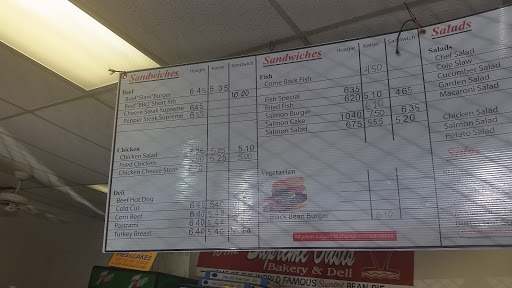 Sandwiches Hoagie Kaiser Sandwich
Beef
Beef "Slam" Burger 6.45 5.35
Beef "BBQ" Short Rib 10.00
Cheese Steak Supreme 6.45
Pepper Steak Supreme 6.55
Chicken
Chicken Salad 5.25 5.10
Fried Chicken 5.20 5.00
Chicken Cheese Steak
Deli
Beef Hot Dog 6.40
Cold Cut 6.40
Corn Beef 6.40
Pastrami 6.40
Turkey Breast 6.40
Sandwiches Hoagie Kaiser Sandwich
Fish
Come Back Fish 4.50
Fish Special 635 465
Fried Fish 620 5.10
Salmon Burger 1040 750 635
Salmon Cake 675 555 5.20
Salmon Salad
Vegetarian
Black Bean Burger 610
Salads
Salads
Chef Salad
Cole Slaw
Cucumber Salad
Garden Salad
Macaroni Salad
Chicken Salad
Salmon Salad
Potato Salad
Supreme Oasis
Bakery & Deli
WORLD FAMOUS Supreme BEAN PIE